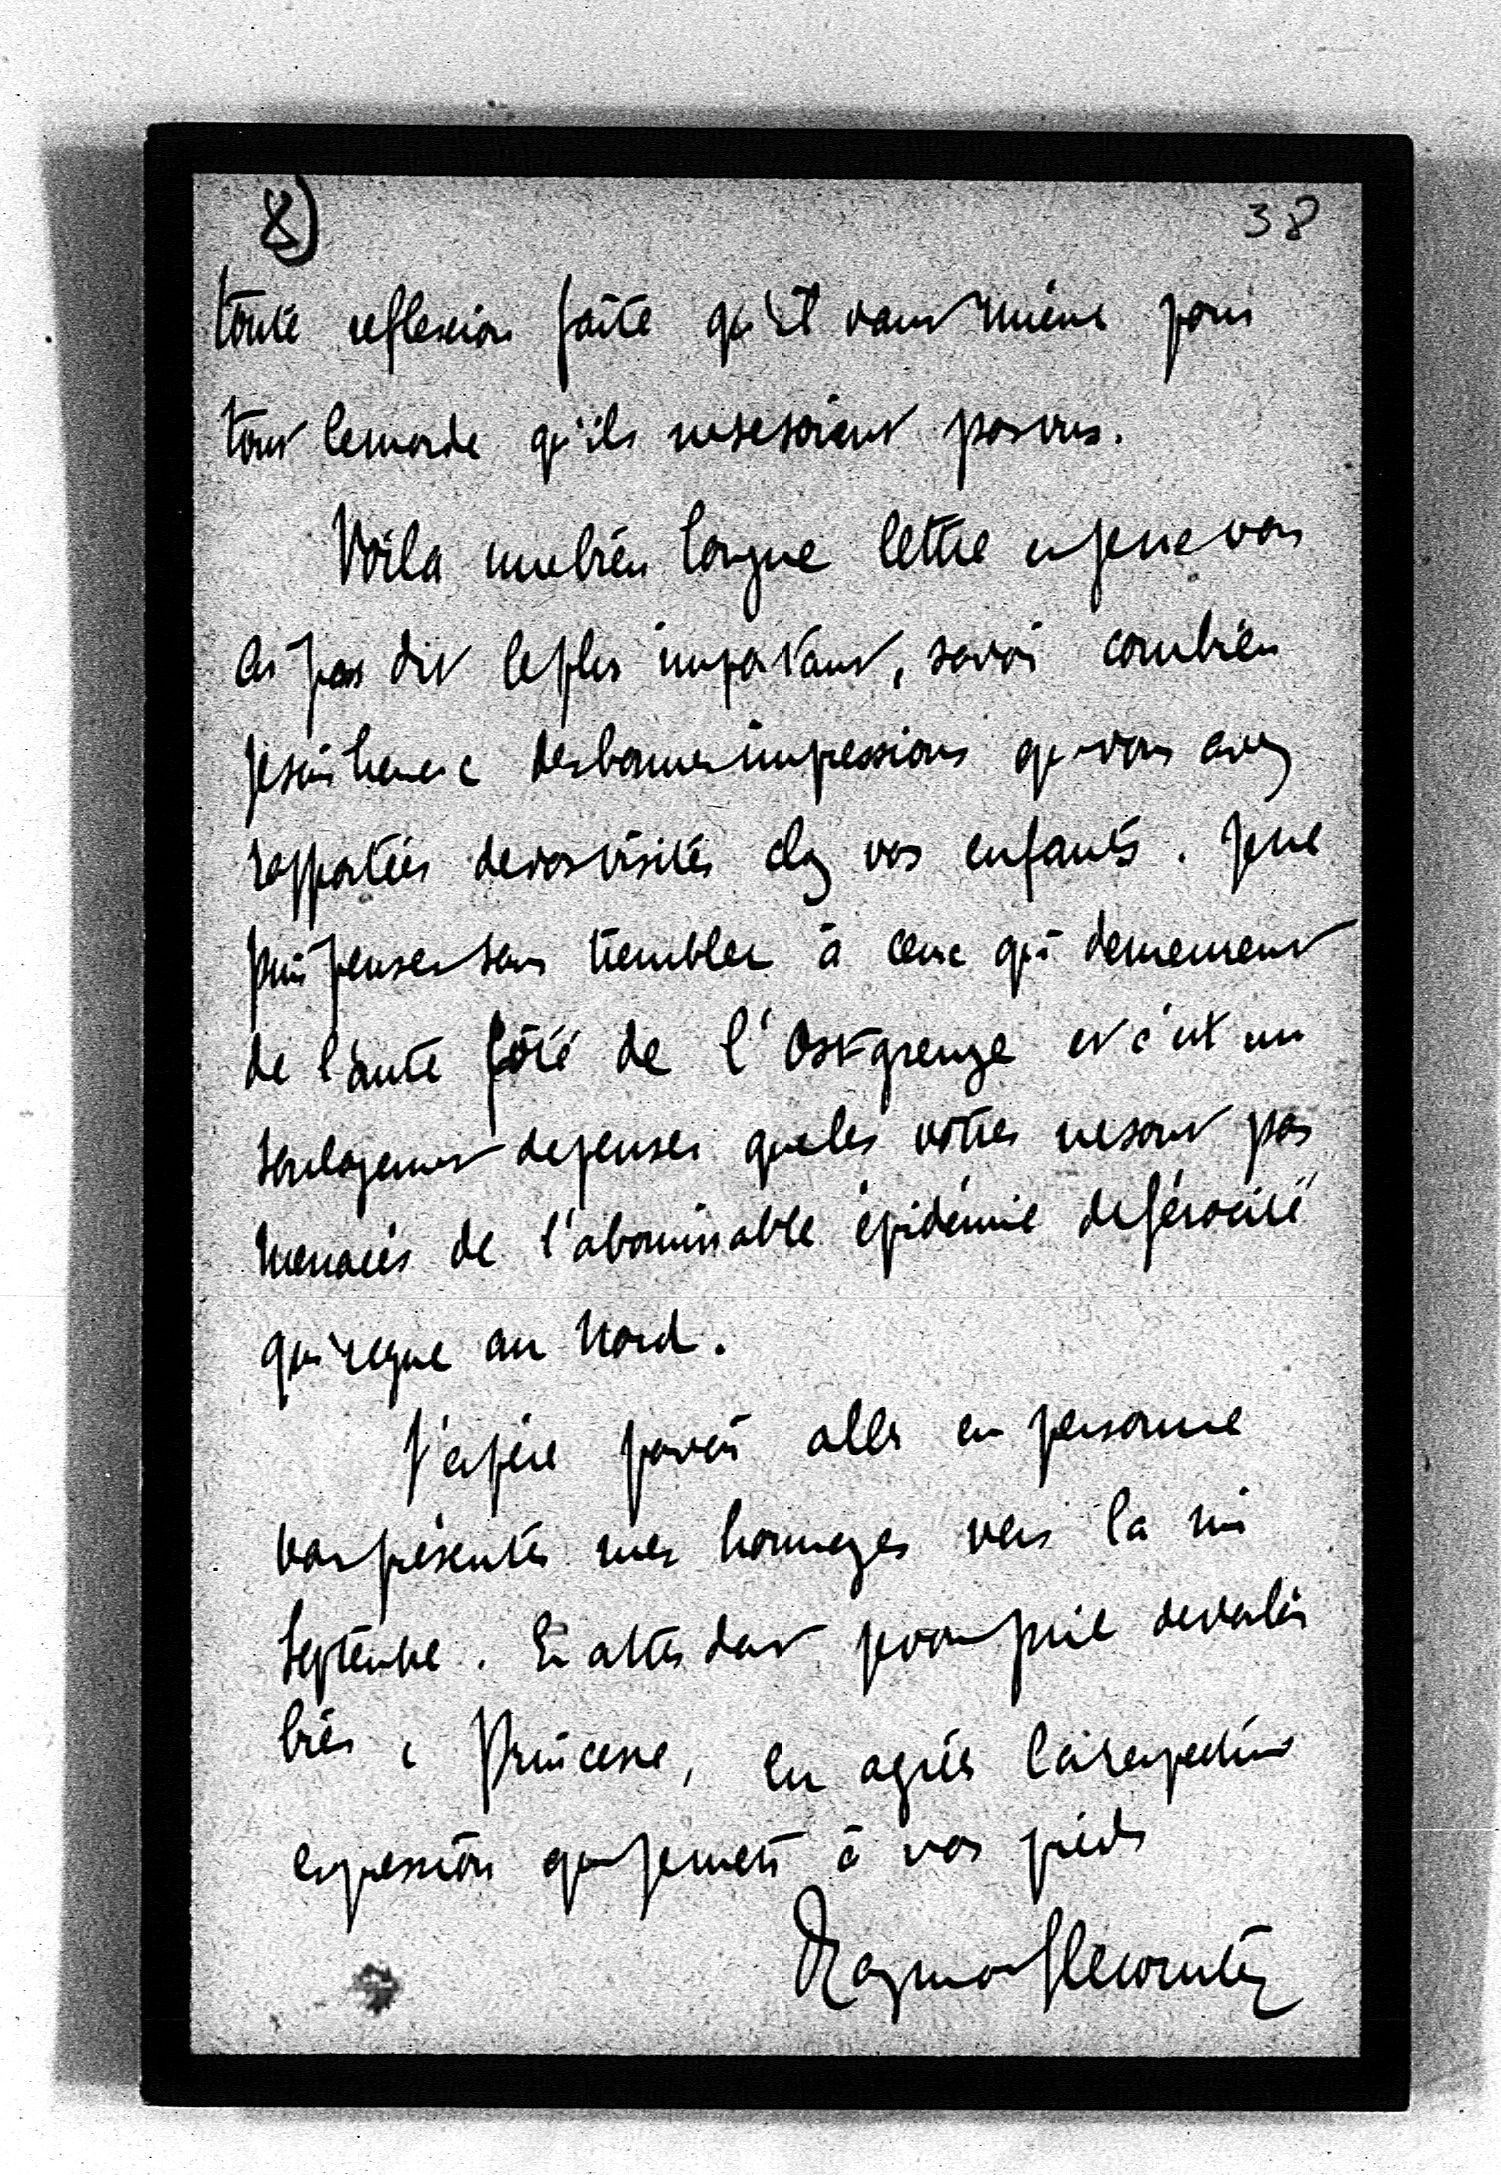 8) 38
toute reflexion faite qu'il vaut mieux pour
tout le monde qu'ils ne se soient pas vus.
Voila une bien longue lettre et je ne vous
ai pas dit le plus important, savoir combien
je suis heureux des bonnes impressions que vous avez
rapportées de vos visites chez vos enfants. Je ne
puis penser sans trembler à ceux qui demeurent
de l'autre côté de l'Ostgrenze et c'est un
soulagement de penser que les vôtres ne sont pas
menacés de l'abominable épidémie de férocité
qui regne au Nord.
J'espère pouvoir aller en personne
vous présenter mes hommages vers la mi
Septembre. En attendant je vous prie de vouloir
bien, Princesse, en agréer la respectueuse
expression que je mets à vos pieds
Raymond Lecomte